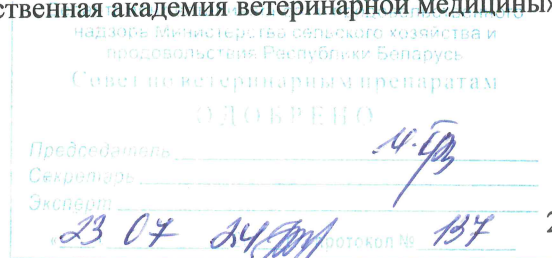 ственная академия ветеринарной медициных
надзора Министерства сельского хозяйства и
продовольствия Республики Беларусь
Совет по ветеринарным препаратам
ОДОБРЕНО
Председатель
Секретарь
Эксперт
23 07 24 протокол № 137 2